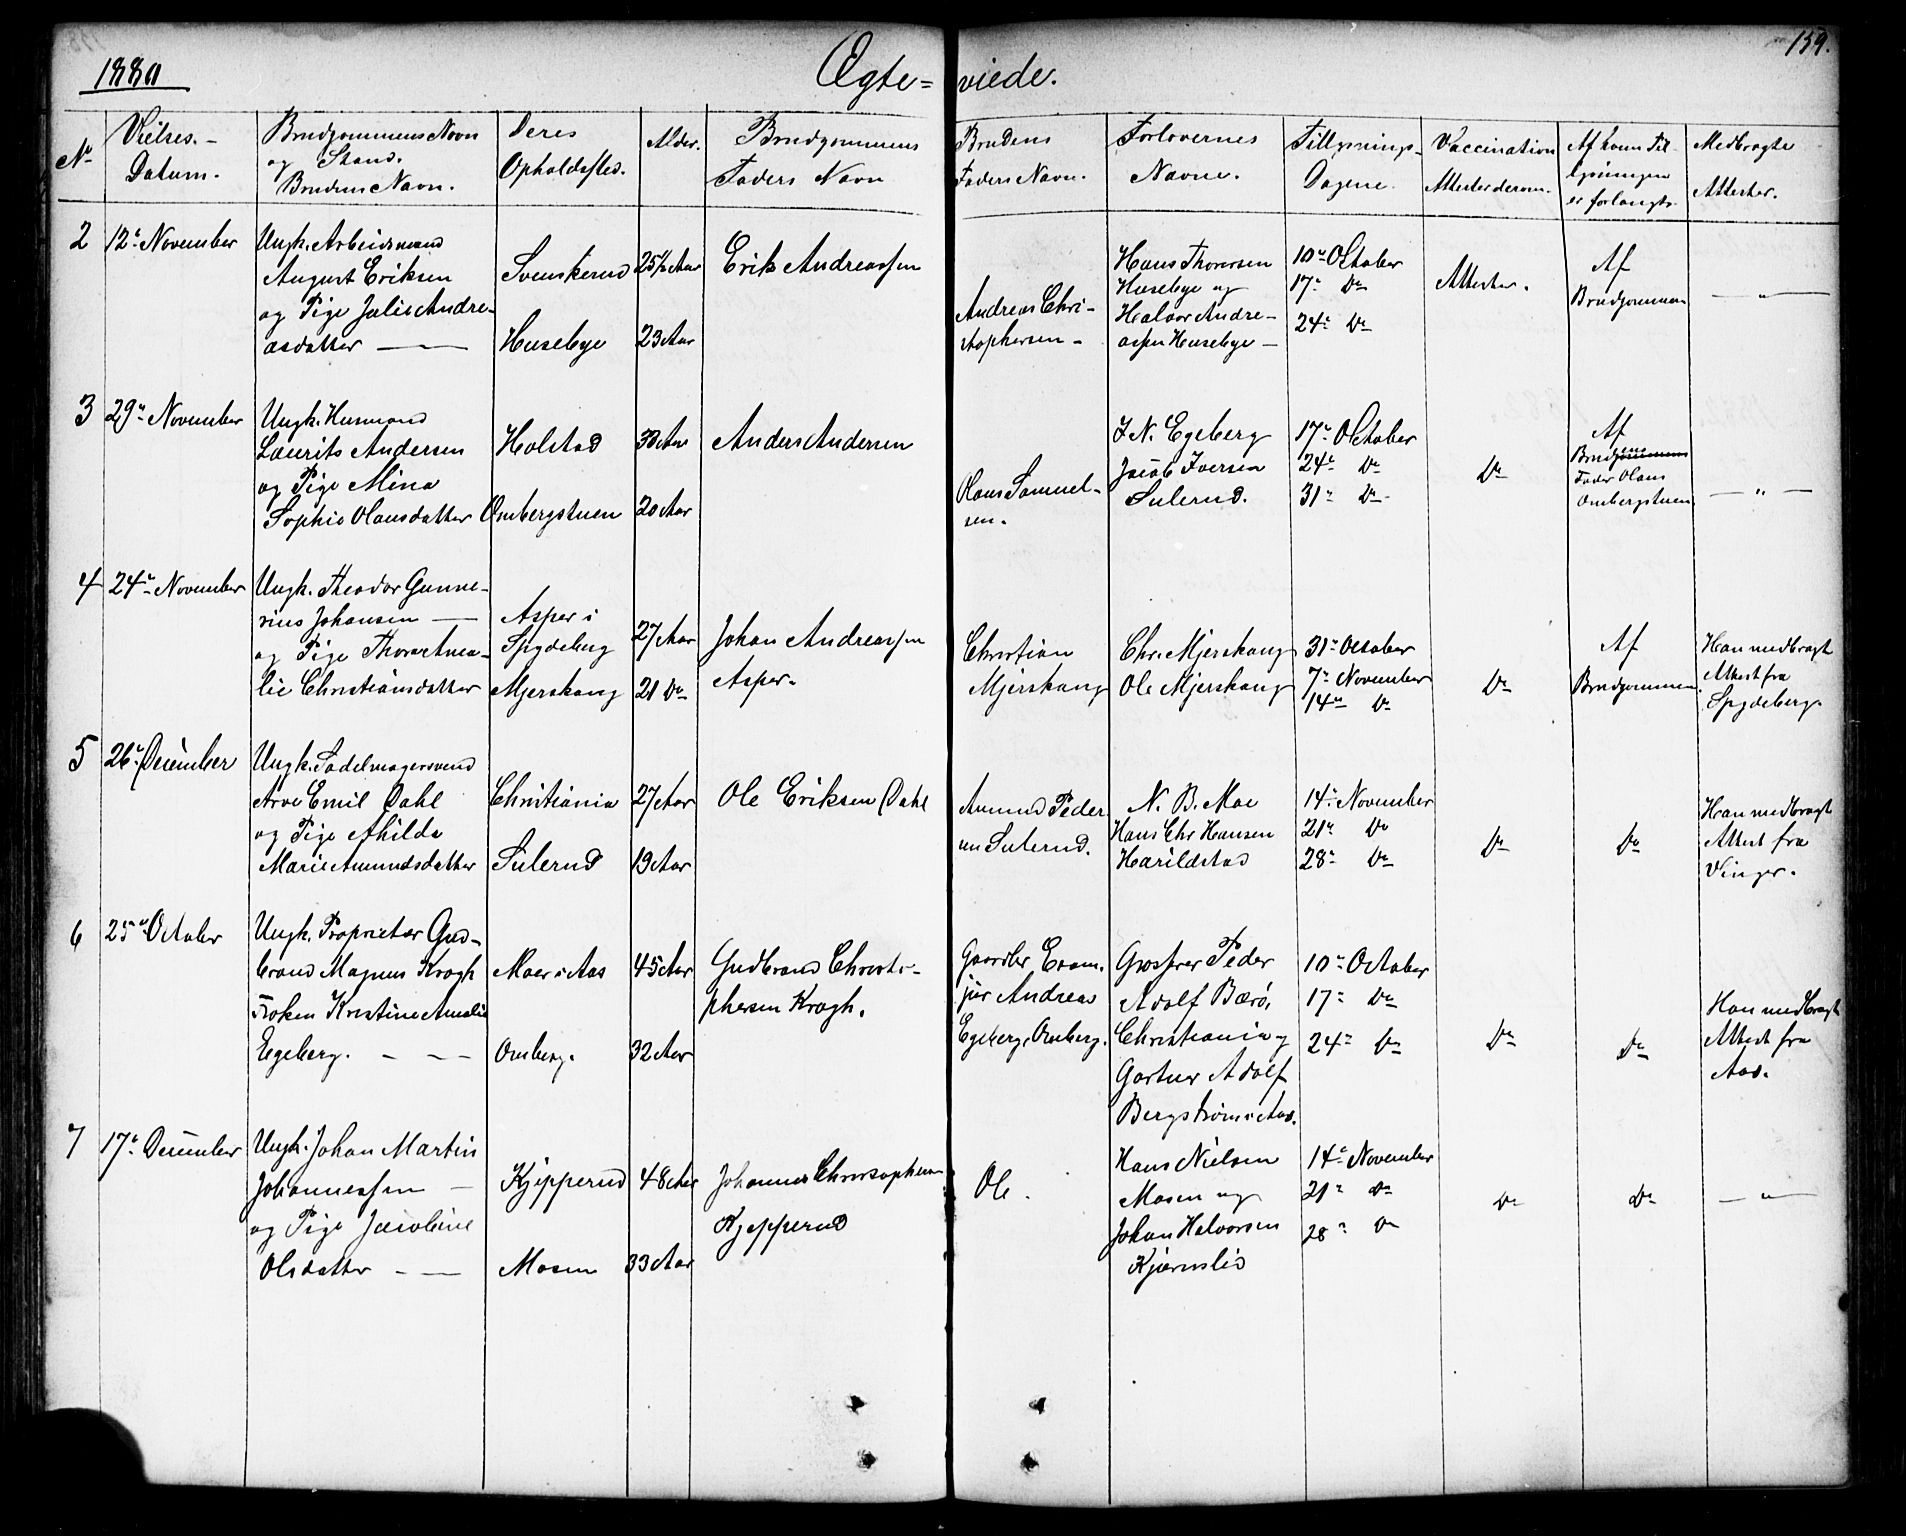 1880
Ægte=viede.
159.
No
Vielses-
Datum.
Brudgommens Navn
og Stand.
Brudens Navn.
Deres
Opholdssted.
Alder.
Brudgommens
Faders Navn
Brudens
Faders Navn.
Forlovernes
Navne.
Tillysnings-
Dagene.
Vaccination
Attester derom.
Af hvem Til-
lysningen
er forlangt.
Medbragte
Attester.
2
12te November
Ungk. Arbeidsmand
August Eriksen
og Pige Julie Andre-
asdatter —
Svenskerud
Husebye
25½ Aar
23 Aar
Erik Andreassen
Andreas Chri-
stophersen -
Hans Thoresen
Husebye og
Halvor Andre-
assen Husebye -
10de October
17de Do
24de Do
Attester.
Af
Brudgommen
— " —
3
29de November
Ungk. Husmand
Laurits Andersen
og Pige Mina
Sophie Olausdatter
Holstad
Ombergstuen
30 Aar
20 Aar
Anders Andersen
Olaus Samuel-
sen.
I N. Egeberg
Jacob Iversen
Sulerud.
17de October
24de Do
31te Do
Do
Af
Brudgommens
Fader Olaus
Ombergstuen
— " —
4
24de November
Ungk. Theodor Gunne-
rius Johansen —
og Pige Thora Ama-
lie Christiansdatter
Asper i
Spydeberg
Mjerskaug
27 Aar
21 Do
Johan Andreassen
Asper.
Christian
Mjerskaug
Chr. Mjerskaug
Ole Mjerskaug
31te October
7de November
14de Do
Do
Af
Brudgommen.
Han medbragt
Attest fra
Spydeberg.
5
26de December
Ungk. Sadelmagersvend
Arve Emil Dahl
og Pige Mhilda
Marie Amundsdatter
Christiania
Sulerud
27 Aar
19 Aar
Ole Eriksen Dahl
Amund Peder
sen Sulerud.
N. B. Moe
Hans Chr Hansen
Harildstad
14de November
21de Do
28de Do
Do
Do
Han medbragt
Attest fra
Vinger.
6
25de October
Ungk. Proprietær Gud-
brand Magnus Krogh
Frøken Kristine Amalie
Egeberg. - - -
Moer i Aas
Omberg.
45 Aar
32 Aar
Gudbrand Christo-
phersen Krogh.
Gaardbr Exam.
jur Andreas
Egeberg, Omberg.
Grosserer Peder
Adolf Bærø,
Christiania og
Gartner Adolf
Bergstrøm i Aas.
10de October
17de Do
24de Do
Do
Do
Han medbragt
Attest fra
Aas.
7
17de December
Ungk. Johan Martin
Johannessen -
og Pige Jacobine
Olsdatter - —
Kjepperud
Mosen
48 Aar
33 Aar
Johannes Christophersen
Kjepperud
Ole.
Hans Nielsen
Mosen og
Johan Halvorsen
Kjærnslid
14de November
21de Do
28de Do
Do
Do
— " —